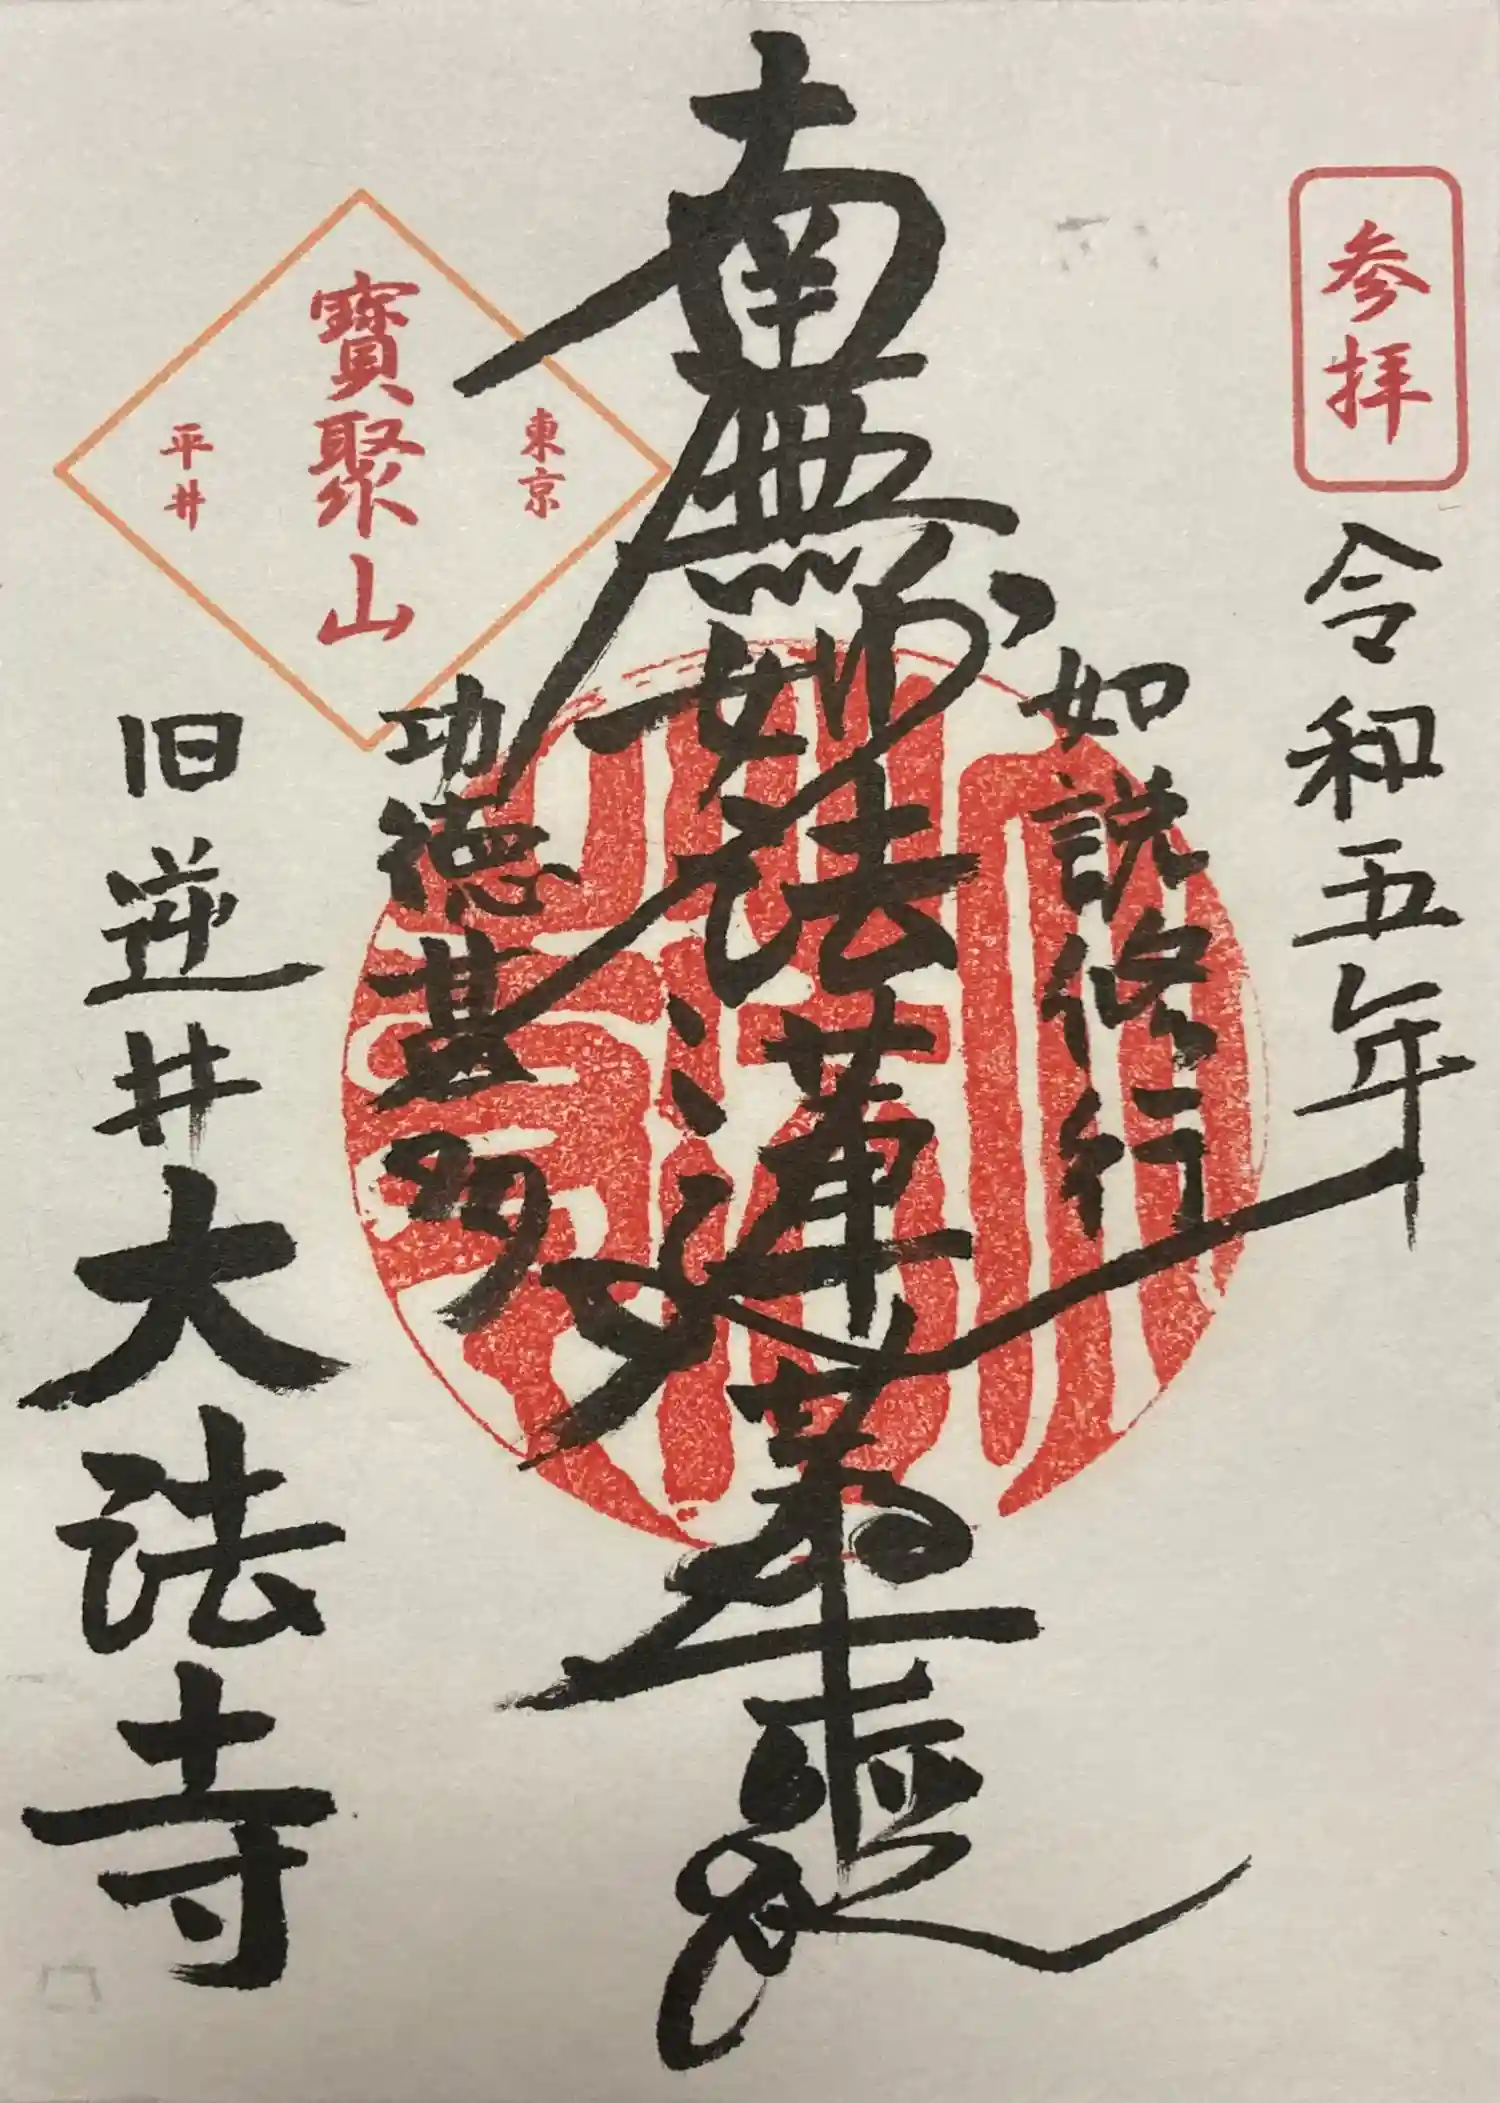 参拝
令和五年
如説修行
南無妙法蓮華経
功徳甚多
東京
寶聚山
平井
旧逆井大法寺